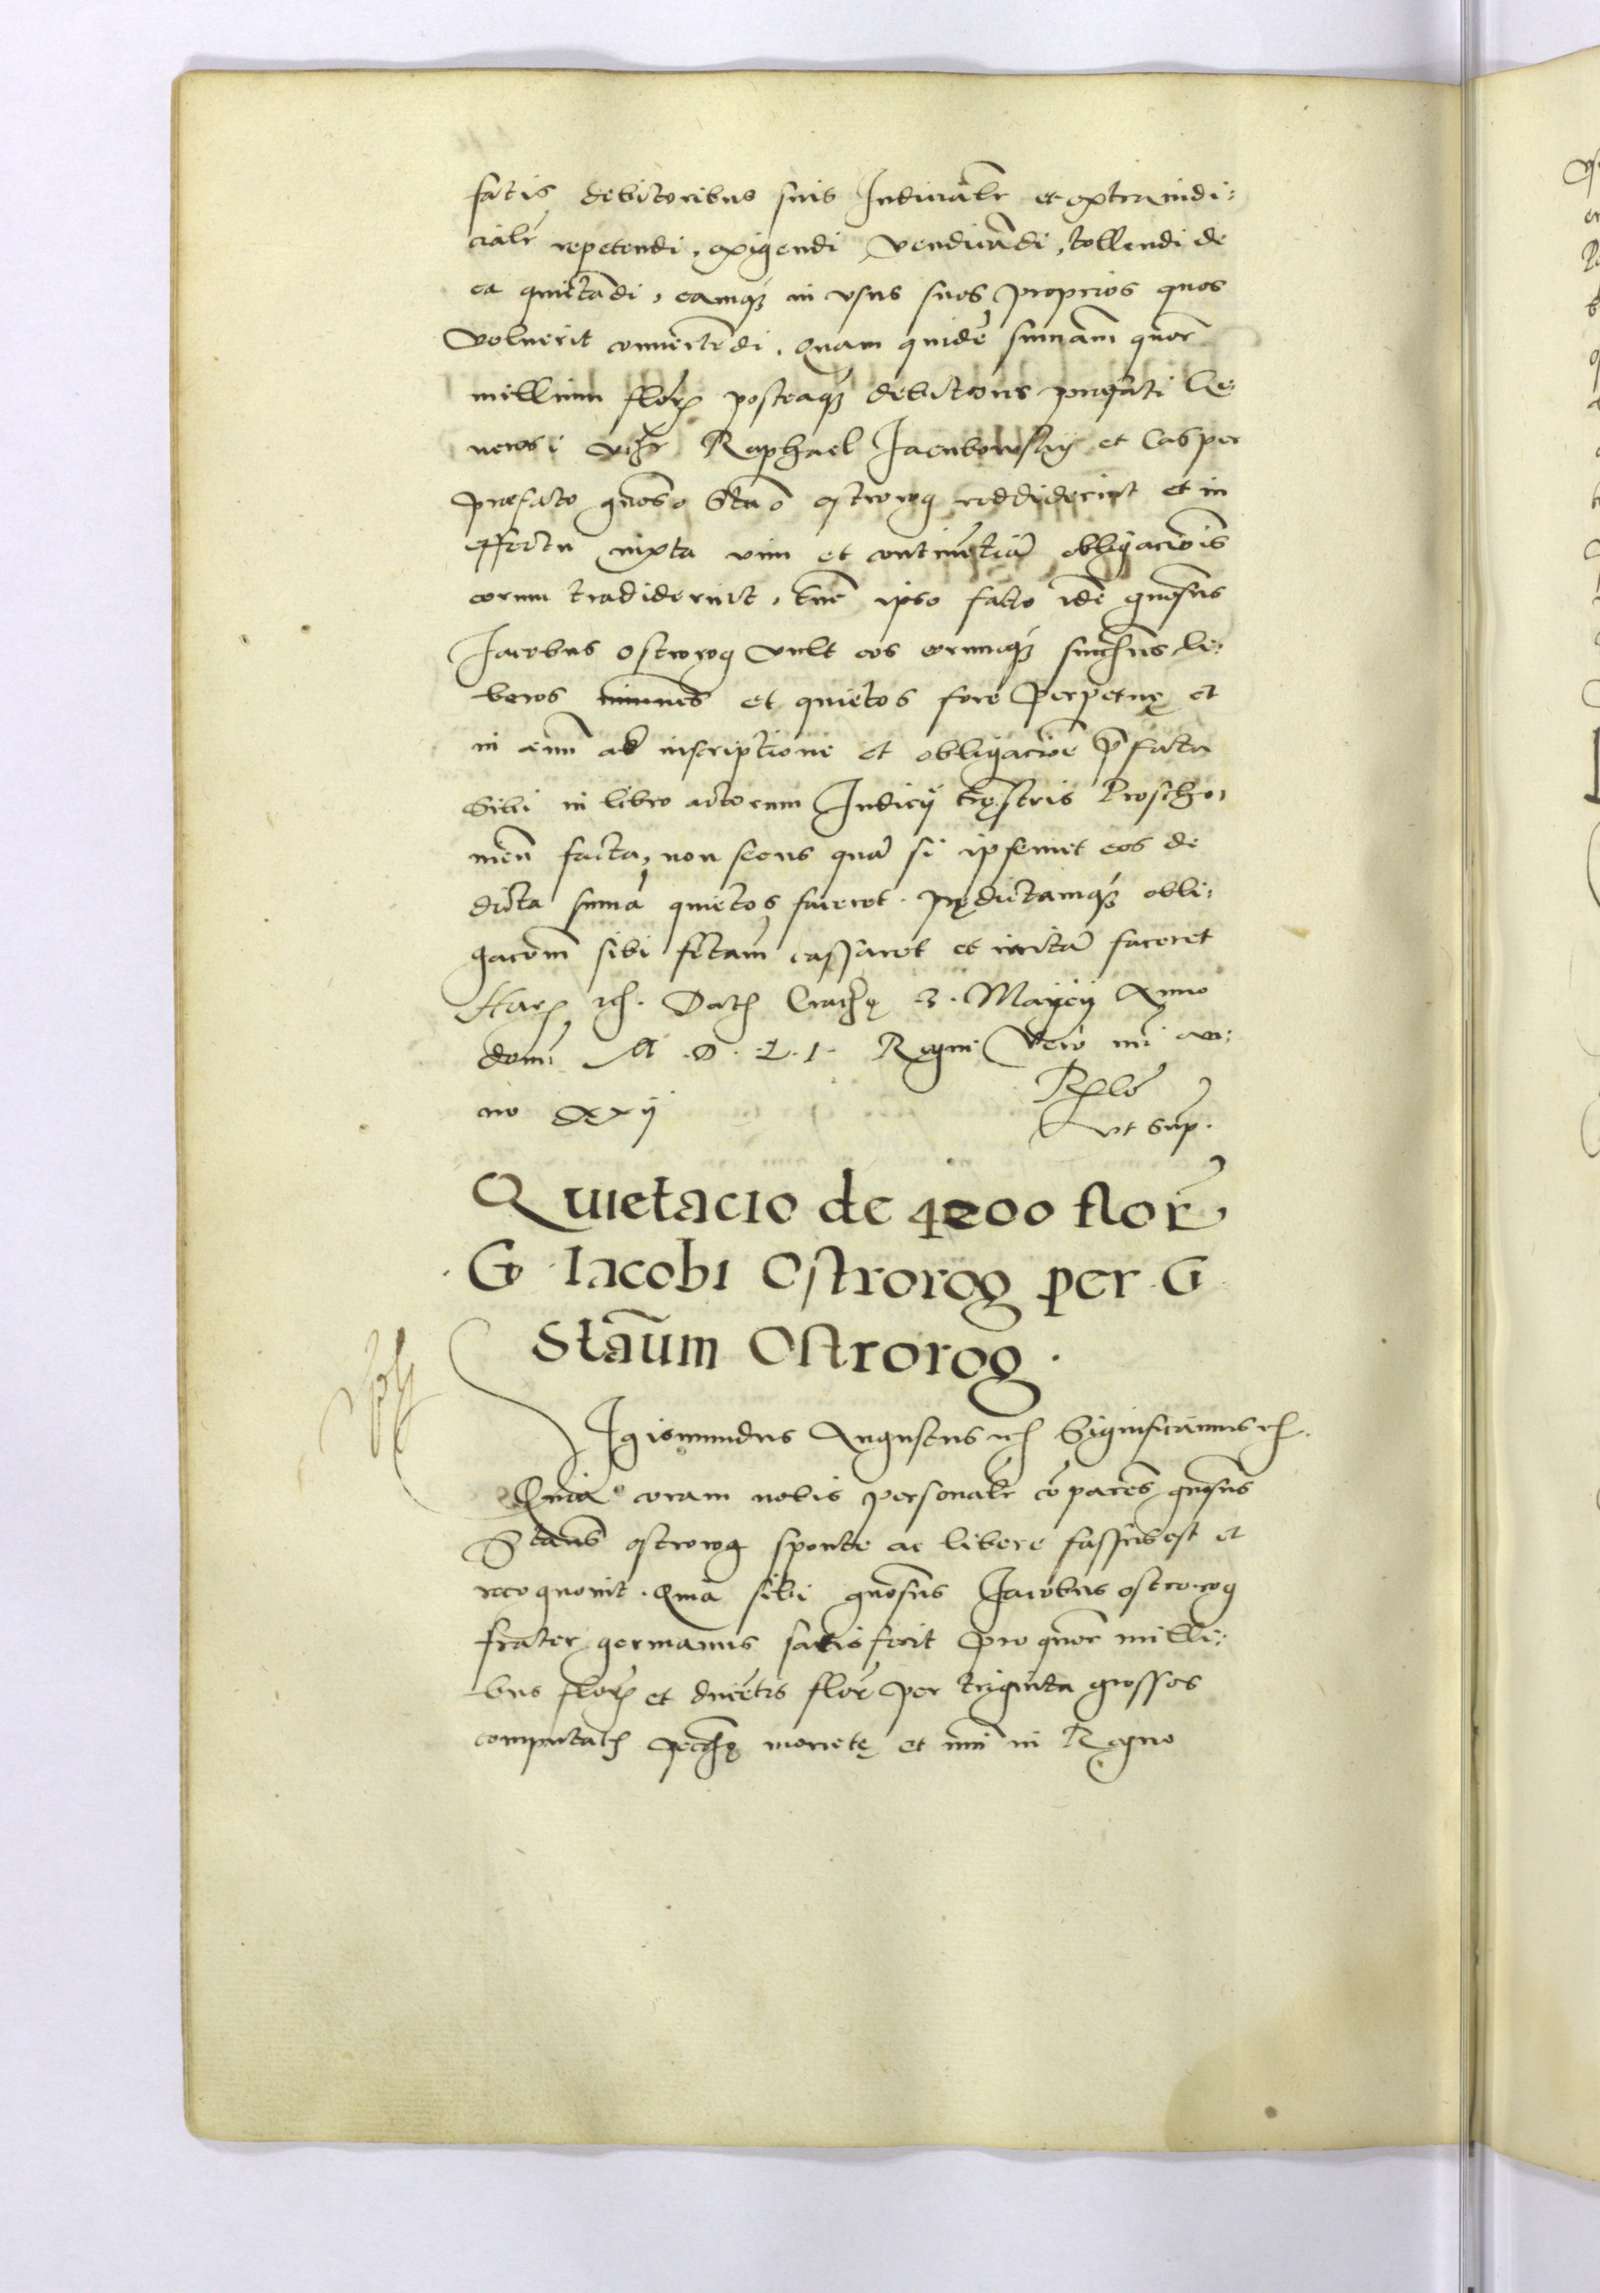 fatis debitoribus suis Iudicialr et extraiudi:
cialr repetendi, exigendi vendicādi, tollendi de
ea quietādi, eamq3 in usus suos proprios quos
voluerit convertēdi. Quam quidē sum̄am quor̄
millium flor̄ posteaq3 debitores prefati Ge
nerosi vīdelr Raphael Jacubowskij et Casper
præfato gn̄oso Stāo ostrorog reddiderint et in
effectu iuxta vim et continētiā obligaciōis
eorum tradiderint, tūc ipso facto idē gn̄osus
Jacobus ostrorog vult eos eorumq3 succ̄ēs li:
beros immunes et quietos fore perpetuę et
in ęvū ab inscriptione et obligaciōe p̄fata
Sibi in libro actorum Iudicij tr̄estris
facta, non secus quā si ipsemet eos de
dicta sum̄a quietos faceret. prędictamq3 obli:
gacōm sibi fctam cassaret et irritā faceret
Harꝫ ꝛc̄. Dat̄ Crac̄ę 3. Maij Anno
domī M. D. L. I. Regni Vero nr̄i an:
no XXij
Relō
ut sup̄.
Quietacio de 4200 flor̄
G Iacobi Ostrorog per G
Stāum Ostrorog.
SIgismundus Augustus ꝛc̄ Significamus ꝛc̄.
Quia coram nobis personalr̄ cōparēs gn̄osus
Stāus ostrorog sponte ac libere fassus est et
recognovit. Quia sibi gn̄osus Jacobus ostrorog
frater germanus satisfecit pro quor̄ milli:
bus flor̄ et ducētis flor̄ per triginta grossos
computat̄ pec̄ę monetę et nūi in Regno